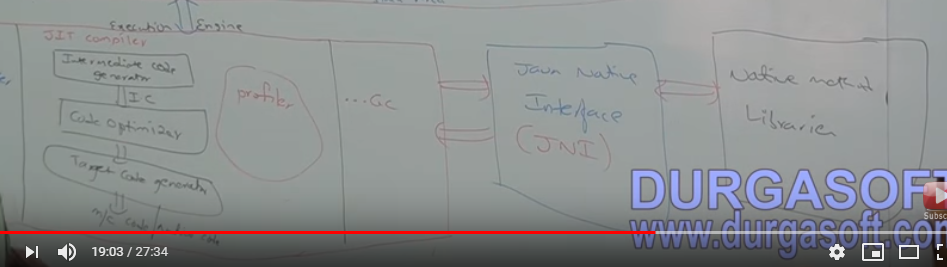 Execution Engine
JIT compiler
Intermediate code
generator
IC
Code optimizer
Target code generator
m/c code/native code
profiler
...GC
Java Native
Interface
(JNI)
Native method
Libraries
DURGASOFT
www.durgasoft.com
Subsc
19:03 / 27:34